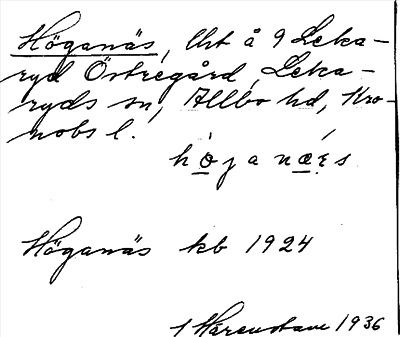 Höganäs, lht å 9 Leka-
ryd Östregård, Leka-
ryds sn, Allbo hd, Kro-
nobs l.
hòganǽs
Höganäs kb 1924
1936